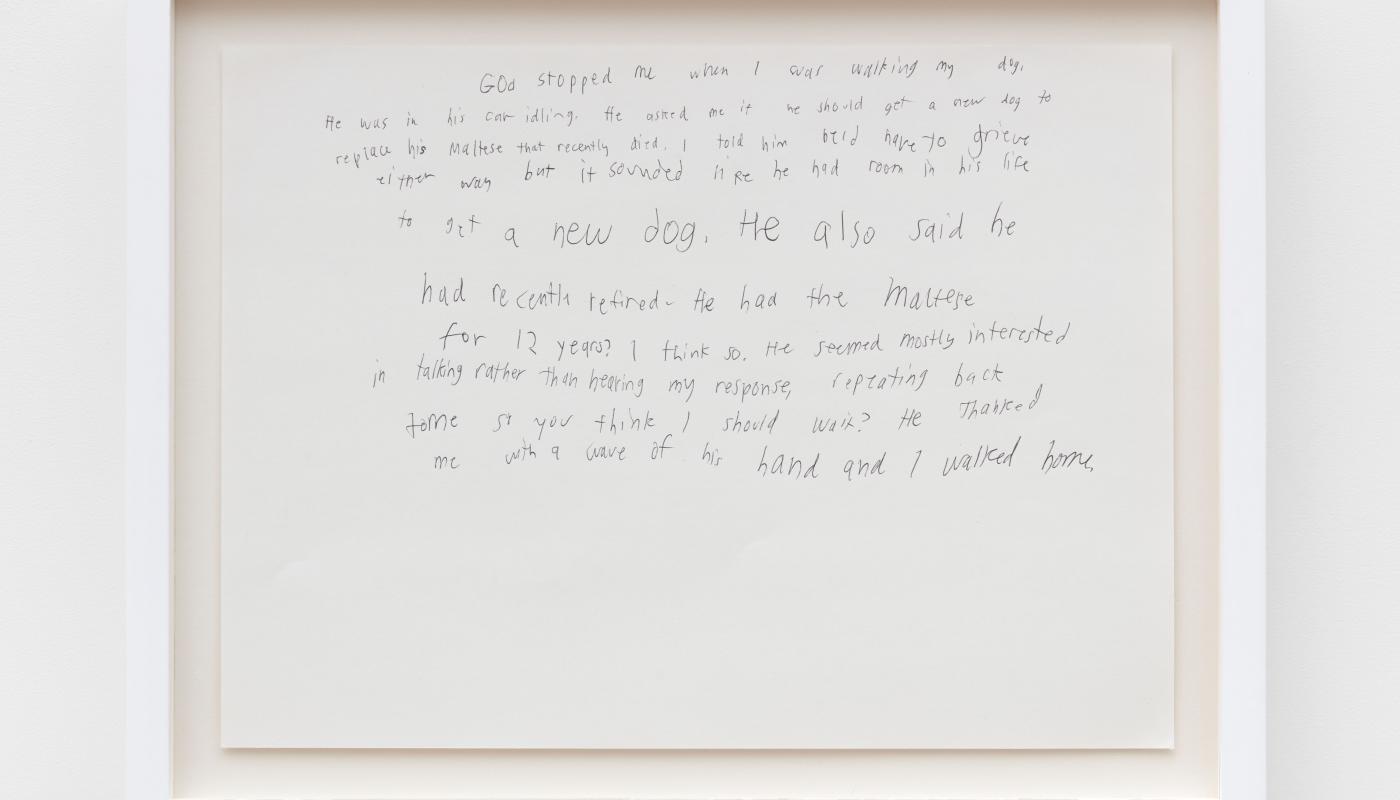 GOd stopped me when I was walking my dog.
He was in his car idling. He asked me if he should get a new dog to
replace his Maltese that recently died. I told him he'd have to grieve
either way but it sounded like he had room in his life
to get a new dog. He also said he
had recently retired. He had the Maltese
for 12 years? I think so. He seemed mostly interested
in talking rather than hearing my response, repeating back
to me so you think I should wait? He Thanked
me with a wave of his hand and I walked home.